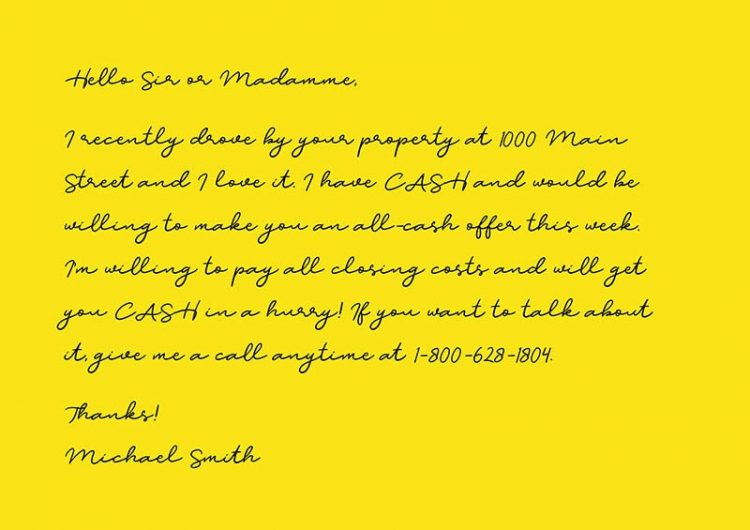 Hello Sir or Madamme,
I recently drove by your property at 1000 Main
Street and I love it. I have CASH and would be
willing to make you an all-cash offer this week.
I'm willing to pay all closing costs and will get
you CASH in a hurry! If you want to talk about
it, give me a call anytime at 1-800-628-1804.
Thanks!
Michael Smith